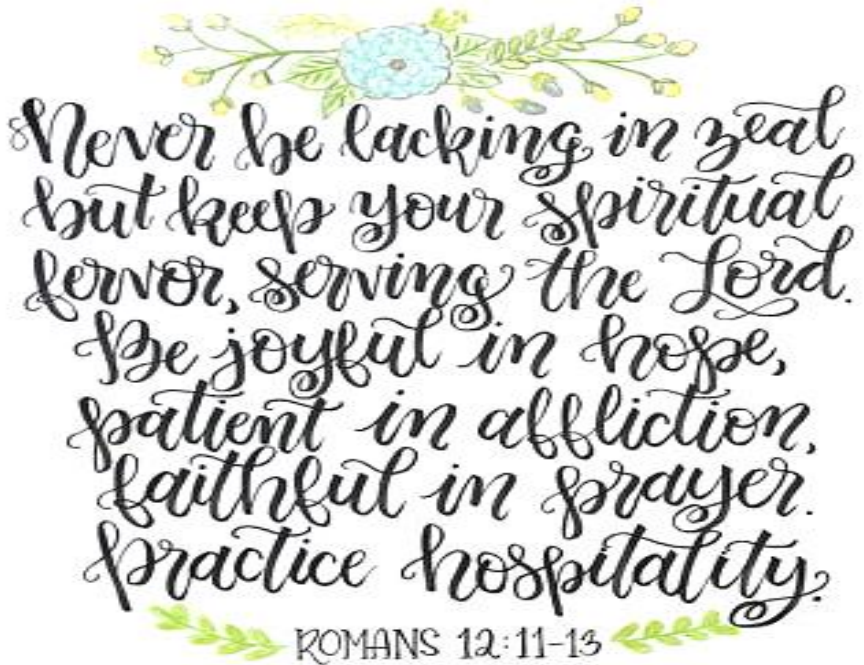 Never be lacking in zeal
but keep your spiritual
fervor, serving the Lord.
Be joyful in hope,
patient in affliction,
faithful in prayer.
Practice hospitality.
ROMANS 12:11-13